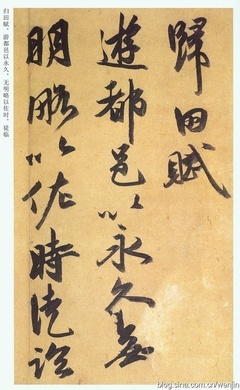 歸田賦
遊都邑以永久無
明略以佐時徒臨
归田赋，游都邑以永久，无明略以佐时，徒临
blog.sina.com.cn/wenjin